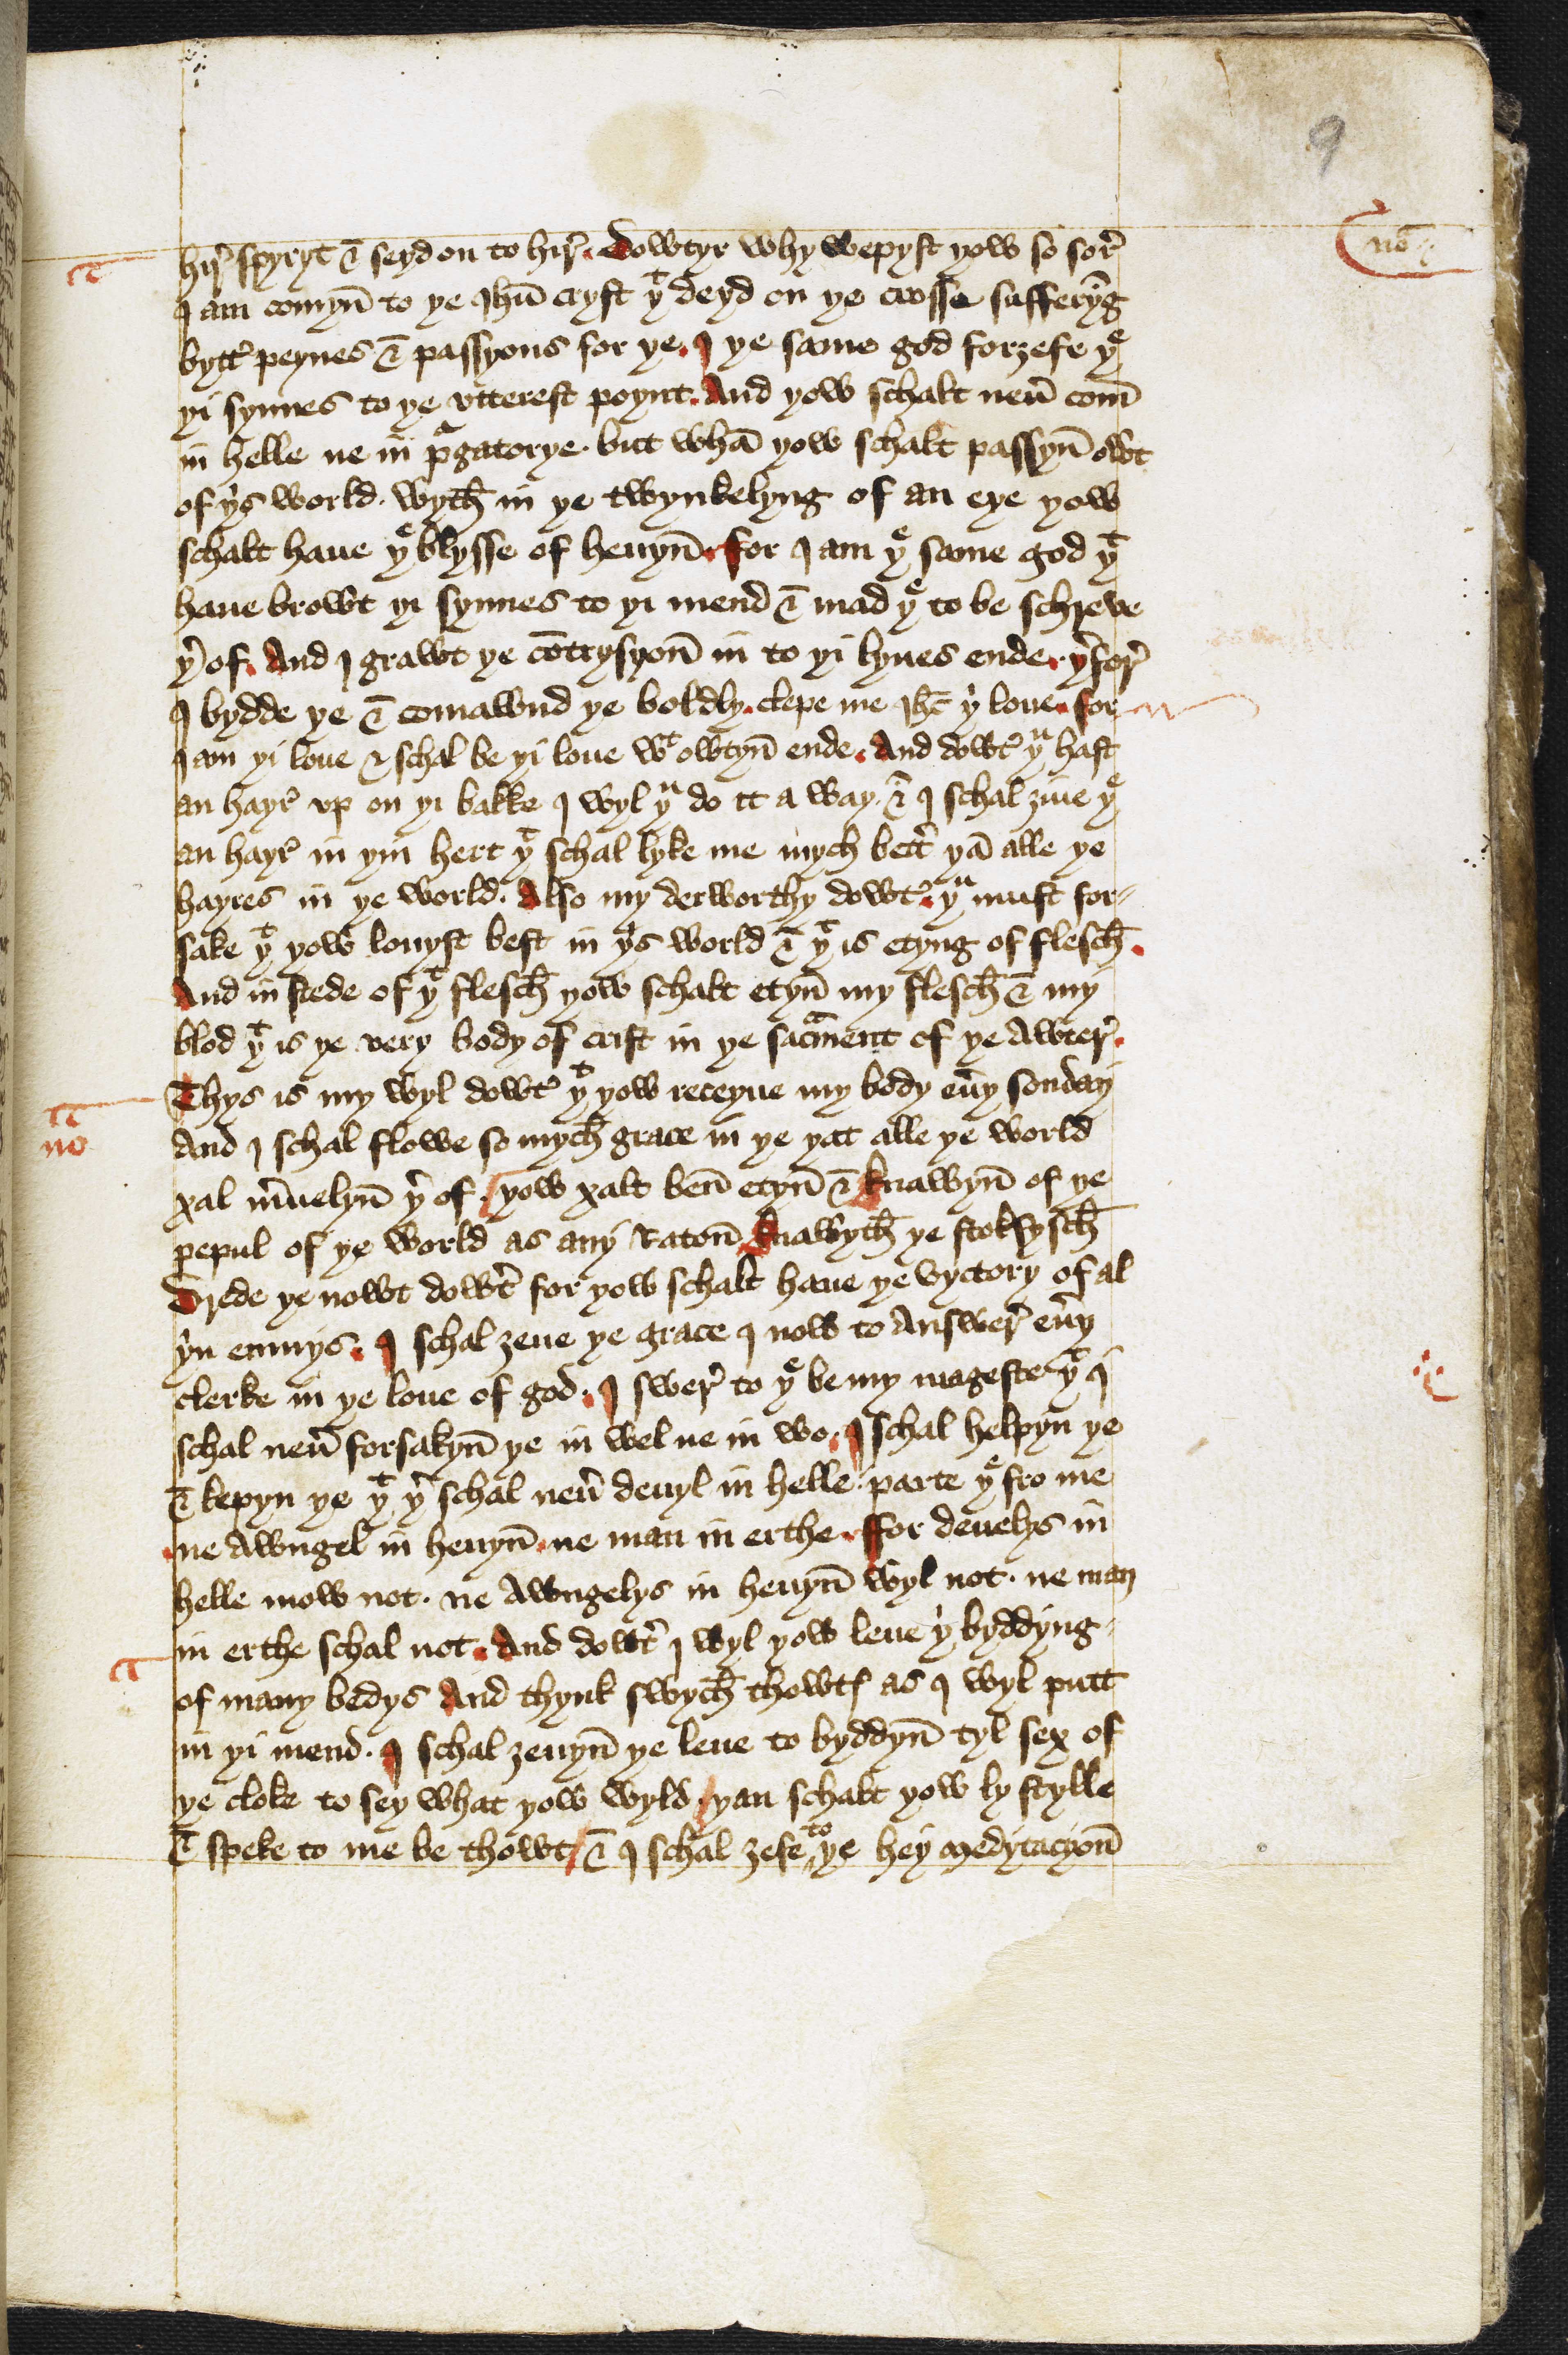 9
hir̛ spyryt & seyd on to hir̛. Dowtyr why wepyst yow so sor̛
no
I am comyn̄ to ye Ihū cryst yᵗ deyd on ye crosse sufferȳg
bytt̛ peynes & passyons for ye. I ye same god forȝefe yᵉ
yi synnes to ye vtterest poynt. And yow schalt neū com̄
in helle ne in p̲gatorye. but whā yow schalt passyn̄ owt
of yˢ world. wytħ in ye twynkelyng of an eye yow
schalt haue yᵉ blysse of heuyn̄. for I am yᵉ same god yᵗ
haue browt yi synnes to yi mend & mad yᵉ to be schreve
y̛ of. And I grawt ye cōtrysyon̄ in to yi lyues ende. y̛for̛
I bydde ye & comawnd ye boldly. clepe me Ihc̄ yⁱ loue. for
I am yi loue & schal be yi loue wᵗ owtyn̄ ende. And dowt̛ yᵘ hast
an hayr̛ vp on yi bakke I wyl yᵘ do it a way. & I schal ȝiue yᵉ
an hayr̛ in yin hert yᵗ schal lyke me mych bett̛ yā alle ye
hayres in ye world. Also my derworthy dowt̛. yᵘ must for-
sake yᵗ yow louyst best in yˢ world & yᵗ is etyng of flescħ.
And in stede of yᵗ flescħ yow schalt etyn̄ my flescħ & my
blod yᵗ is ye very body of crist in ye sacᵃment of ye Awter̛.
Thys is my wyl dowt̛ yᵗ yow receyue my body eūy sonday
no
And I schal flowe so mycħ grace in ye yat alle ye world
xal m̄uelyn̄ y̛ of. yow xalt ben̄ etyn̄ & knawyn̄ of ye
pepul of ye world as any Raton̄ knawytħ ye stokfyscħ
Drede ye nowt dowt̛ for yow schalt haue ye vyctory of al
yⁱn enmys. I schal ȝeue ye grace I now to Answer̛ eūy
clerke in ye loue of god. I swer̛ to yᵉ be my mageste yᵗ I
schal neū forsakyn̄ ye in wel ne in wo. I schal helpyn ye
& kepyn ye yᵗ y̛ schal neū deuyl in helle parte yᵉ fro me
ne Awngel in heuyn̄. ne man in erthe. ffor deuelys in
helle mow not. ne Awngelys in heuyn̄ wyl not. ne man
in erthe schal not. And dowt̛ I wyl yow leue yⁱ byddyng
of many bedys And thynk swycħ thowtꝭ as I wyl putt
in yi mend. I schal ȝeuyn̄ ye leue to byddyn̄ tyl sex of
ye cloke to sey what yow wyld. yan schalt yow ly stylle
& speke to me be thowt. & I schal ȝefe to ye hey medytacyon̄